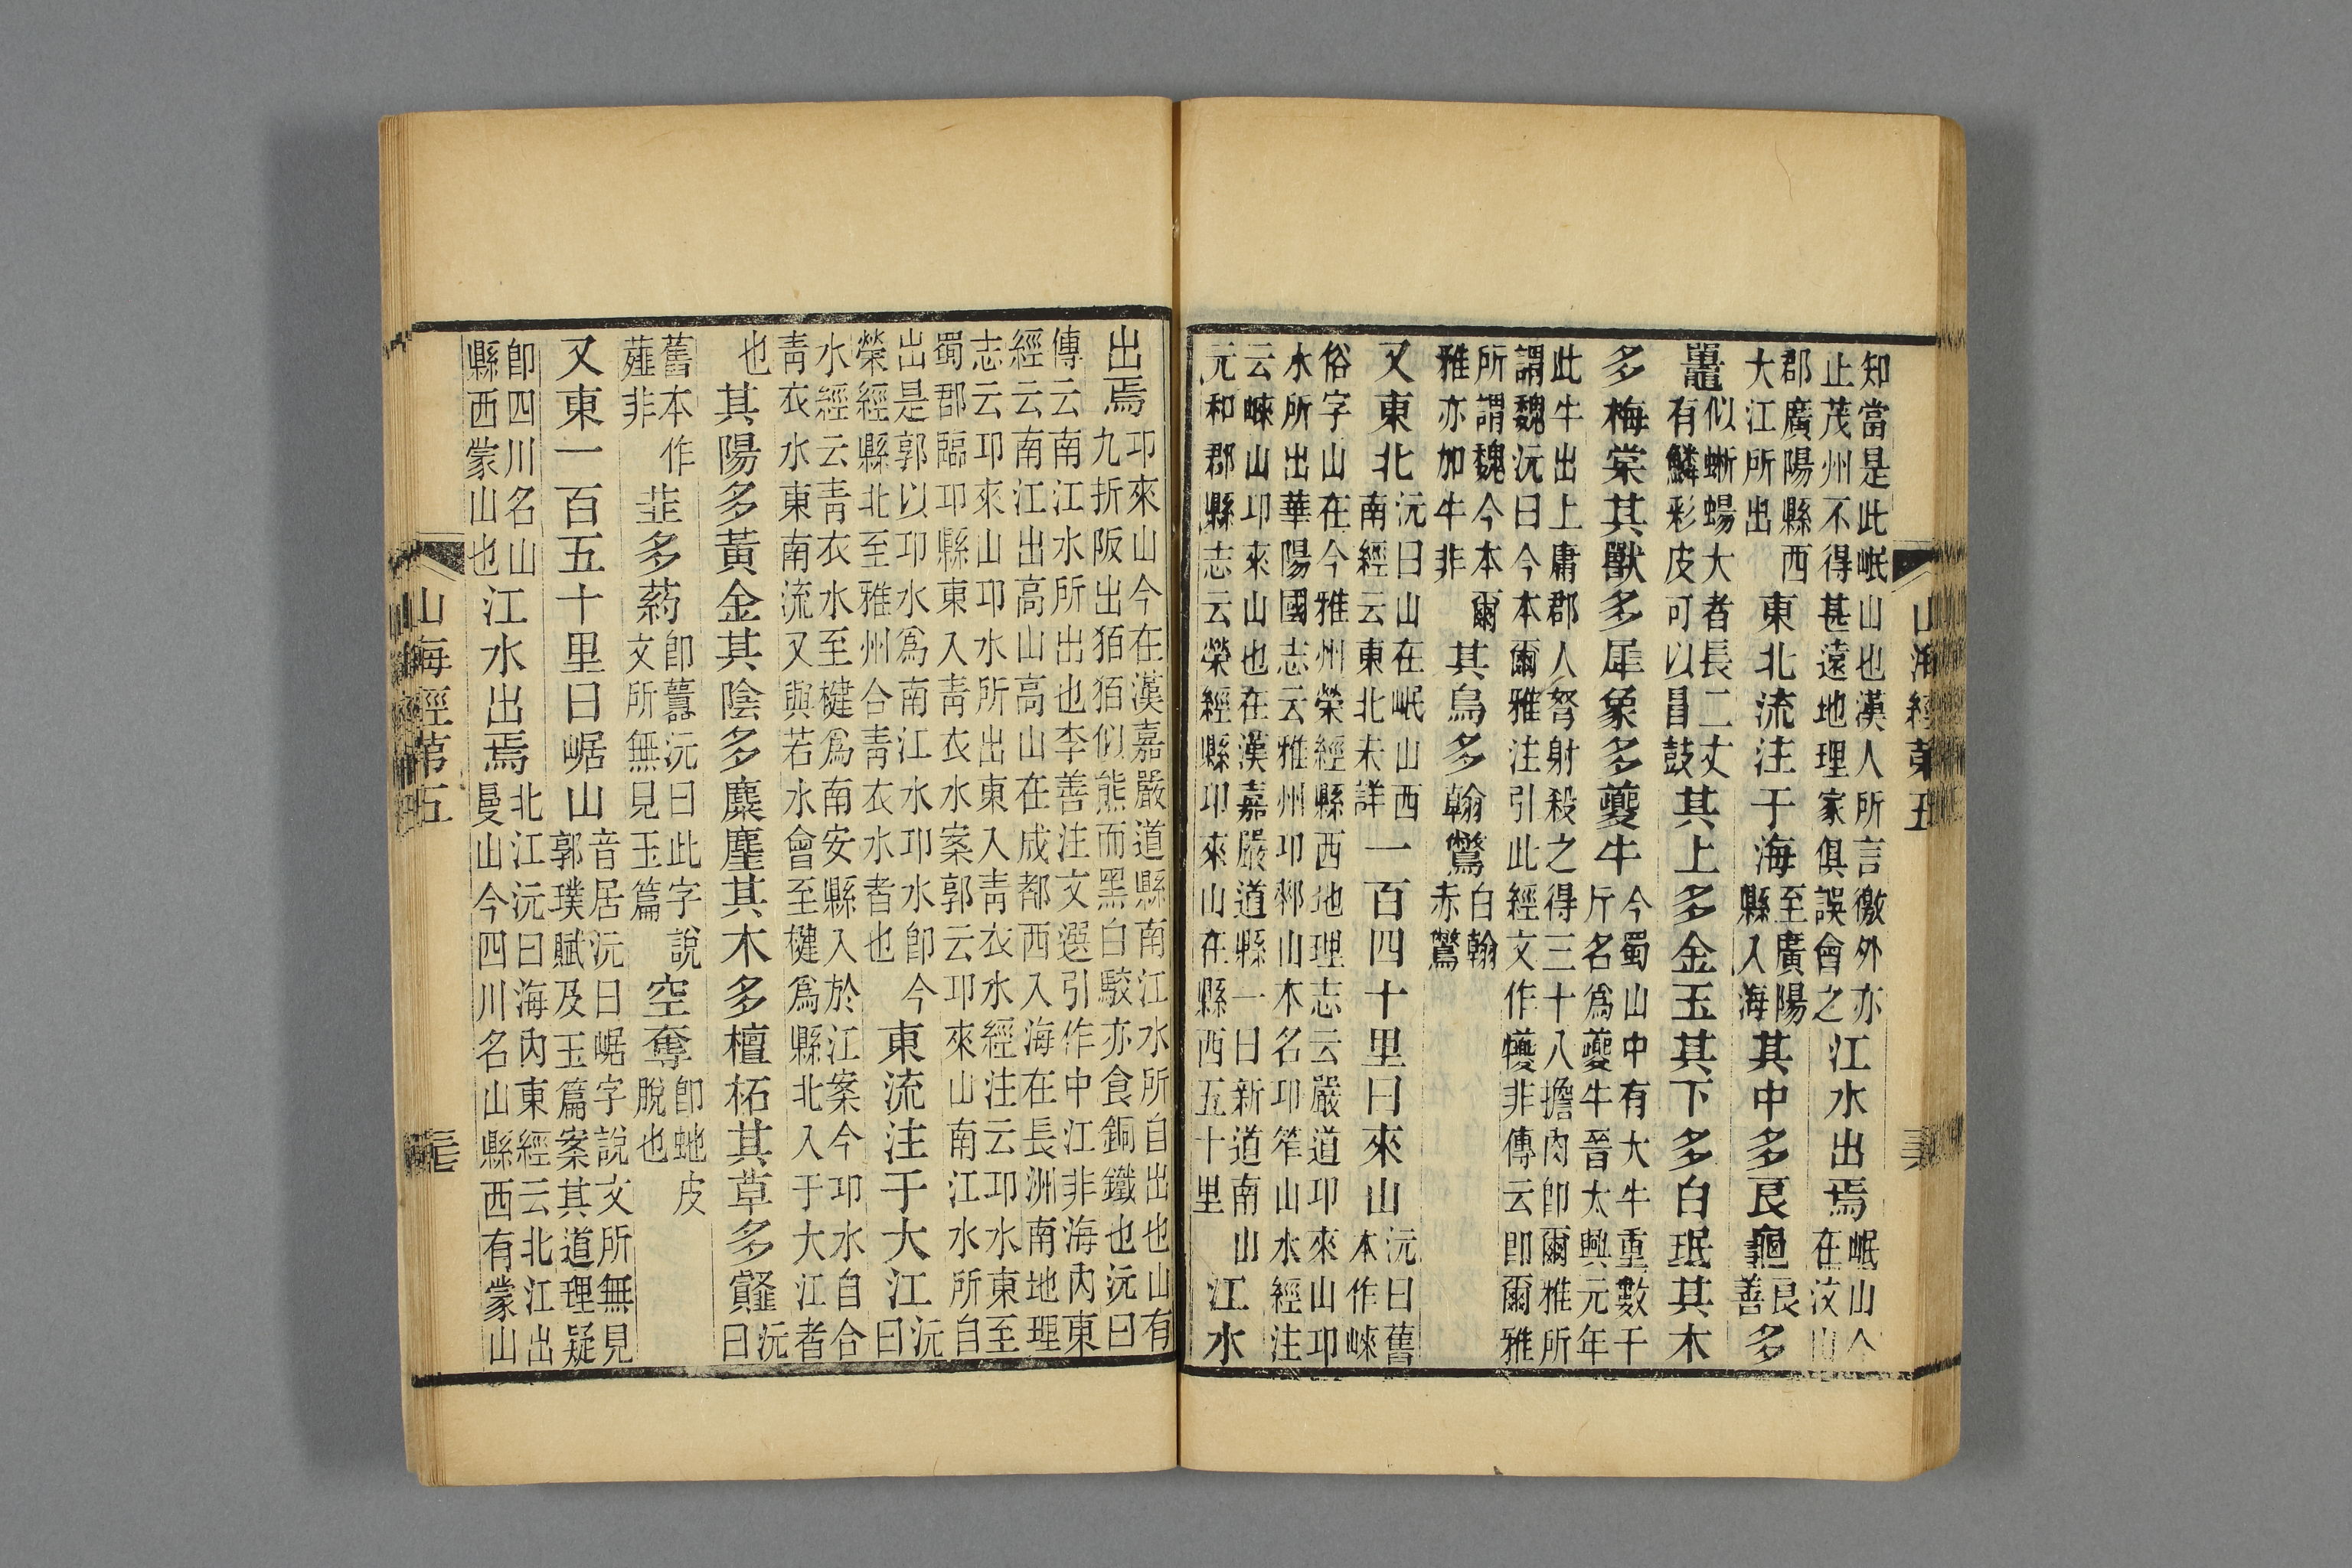 山海經第五
知當是此岷山也漢人所言徼外亦
止茂州不得甚遠地理家俱誤會之
江水出焉
岷山今
在汶山
郡廣陽縣西
大江所出
東北流注于海
至廣陽
縣入海
其中多良龜
良
善
多
鼉
似蜥蜴大者長二丈
有鱗彩皮可以冒鼓
其上多金玉其下多白珉其木
多梅棠其獸多犀象多夔牛
今蜀山中有大牛重數千
斤名爲夔牛晉太興元年
此牛出上庸郡人弩射殺之得三十八擔肉卽爾雅所
謂魏沅曰今本爾雅注引此經文作犪非傳云卽爾雅
所謂魏今本爾
雅亦加牛非
其鳥多翰鷩
白翰
赤鷩
又東北
沅曰山在岷山西
南經云東北未詳
一百四十里曰來山
沅曰舊
本作崍
俗字山在今雅州榮經縣西地理志云嚴道邛來山邛
水所出華陽國志云雅州邛郲山本名邛筰山水經注
云崍山邛來山也在漢嘉嚴道縣一曰新道南山
元和郡縣志云榮經縣邛來山在縣西五十里
江水
出焉
邛來山今在漢嘉嚴道縣南江水所自出也山有
九折阪出狛狛似熊而黑白駮亦食銅鐵也沅曰
傳云南江水所出也李善注文選引作中江非海內東
經云南江出高山高山在成都西入海在長洲南地理
志云邛來山邛水所出東入青衣水經注云邛水東至
蜀郡臨邛縣東入青衣水案郭云邛來山南江水所自
出是郭以邛水爲南江水邛水卽今
榮經縣北至雅州合青衣水者也
東流注于大江
沅
曰
水經云青衣水至楗爲南安縣入於江案今邛水自合
青衣水東南流又與若水會至楗爲縣北入于大江者
也
其陽多黃金其陰多麋麈其木多檀柘其草多䪥
沅
曰
舊本作
薤非
韭多葯
卽虈沅曰此字說
文所無見玉篇
空奪
卽蛇皮
脫也
又東一百五十里曰崌山
音居沅曰崌字說文所無見
郭璞賦及玉篇案其道理疑
卽四川名山
縣西蒙山也
江水出焉
北江沅曰海內東經云北江出
曼山今四川名山縣西有蒙山
山海經第五